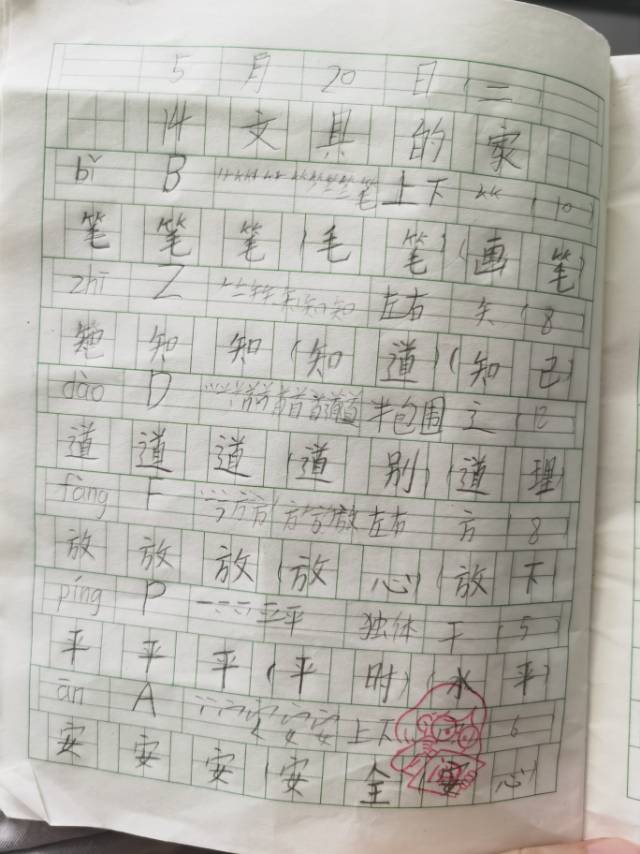 5月20日(二)
14 文具的家
bǐ B 上下 ⺮ (10)
笔 笔 笔 (毛笔) (画笔)
zhī Z 左右 矢 (8)
知 知 知 (知道) (知己)
dào D 半包围 辶 12
道 道 道 (道别) (道理)
fàng F 左右 方 (8)
放 放 放 (放心) (放下)
píng P 独体 干 (5)
平 平 平 (平时) (水平)
ān A 上下 6
安 安 安 (安全) (安心)